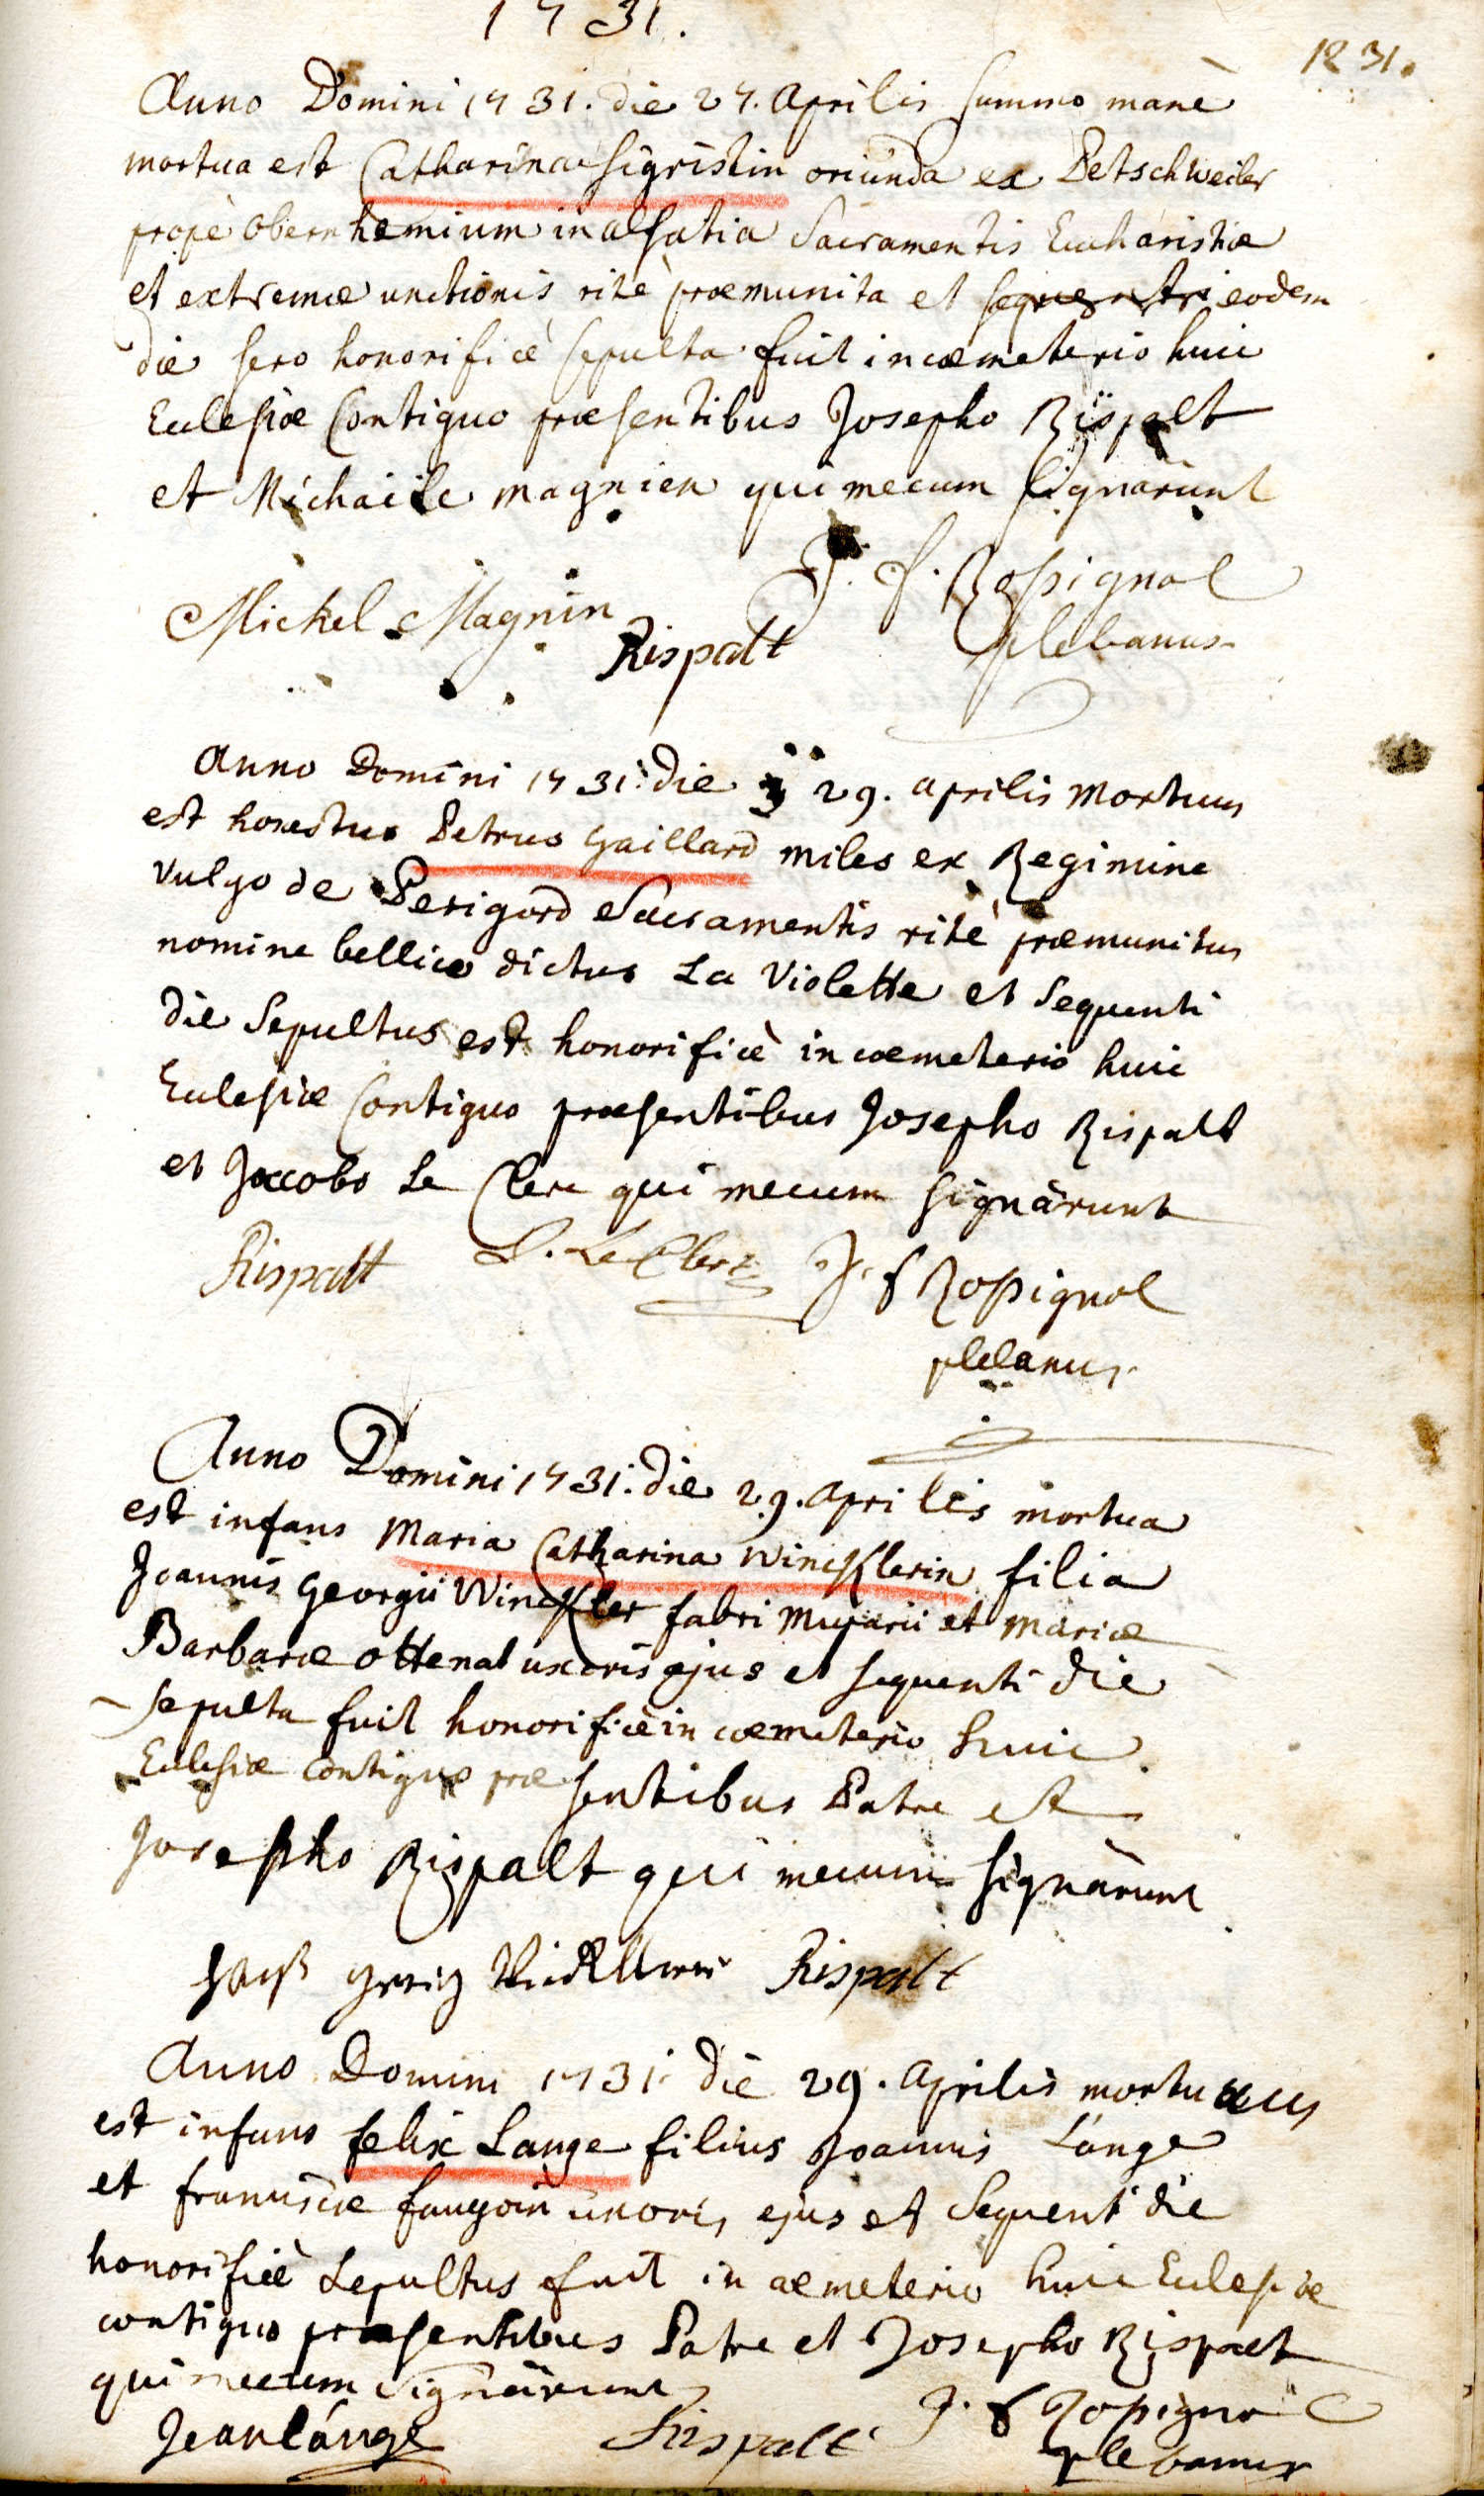 1731.
1731.
Anno Domini 1731. die 27. Aprilis summo manè
mortua est Catharina Sigristin oriunda ex Betschweiler
propè obernhemium in alsatia Sacramentis Eucharistiæ
et extremæ unctionis ritè præmunita et sequenti eodem
die sero honorificè sepulta fuit in cœmeterio huic
Ecclesiæ Contiguo præsentibus Josepho Rispalt
et Michaële magnien qui mecum signârunt
J. f. Rossignol
Michel Magnin
Rispalt
plebanus
Anno Domini 1731. die 29. aprilis mortuus
est honestus Petrus Gaillard miles ex Regimine
vulgo de Perigord Sacramentis ritè præmunitus
nomine bellico dictus La Violette et sequenti
die Sepultus est honorificè in cœmeterio huic
Ecclesiæ Contiguo præsentibus Josepho Rispalt
et Jacobo Le Clerc qui mecum signârunt
Rispalt Le Clerc J. f Rossignol
plebanus
Anno Domini 1731. die 29. Aprilis mortua
est infans Maria Catharina Wincklerin filia
Joannis Georgii Winckler fabri Murarii et Mariæ
Barbaræ Ottenat uxoris ejus et sequenti die
sepulta fuit honorificè in cœmeterio huic
Ecclesiæ contiguo præsentibus Patre et
Josepho Rispalt qui mecum signârunt
Rispalt
Anno Domini 1731. die 29. Aprilis mortuus
est infans felix Lange filius Joannis Lange
et franciscæ uxoris ejus et Sequenti die
honorificè Sepultus fuit in cœmeterio huic Ecclesiæ
contiguo præsentibus Patre et Josepho Rispalt
qui mecum signârunt
Jean lánge Rispalt J. f Rossignol
plebanus